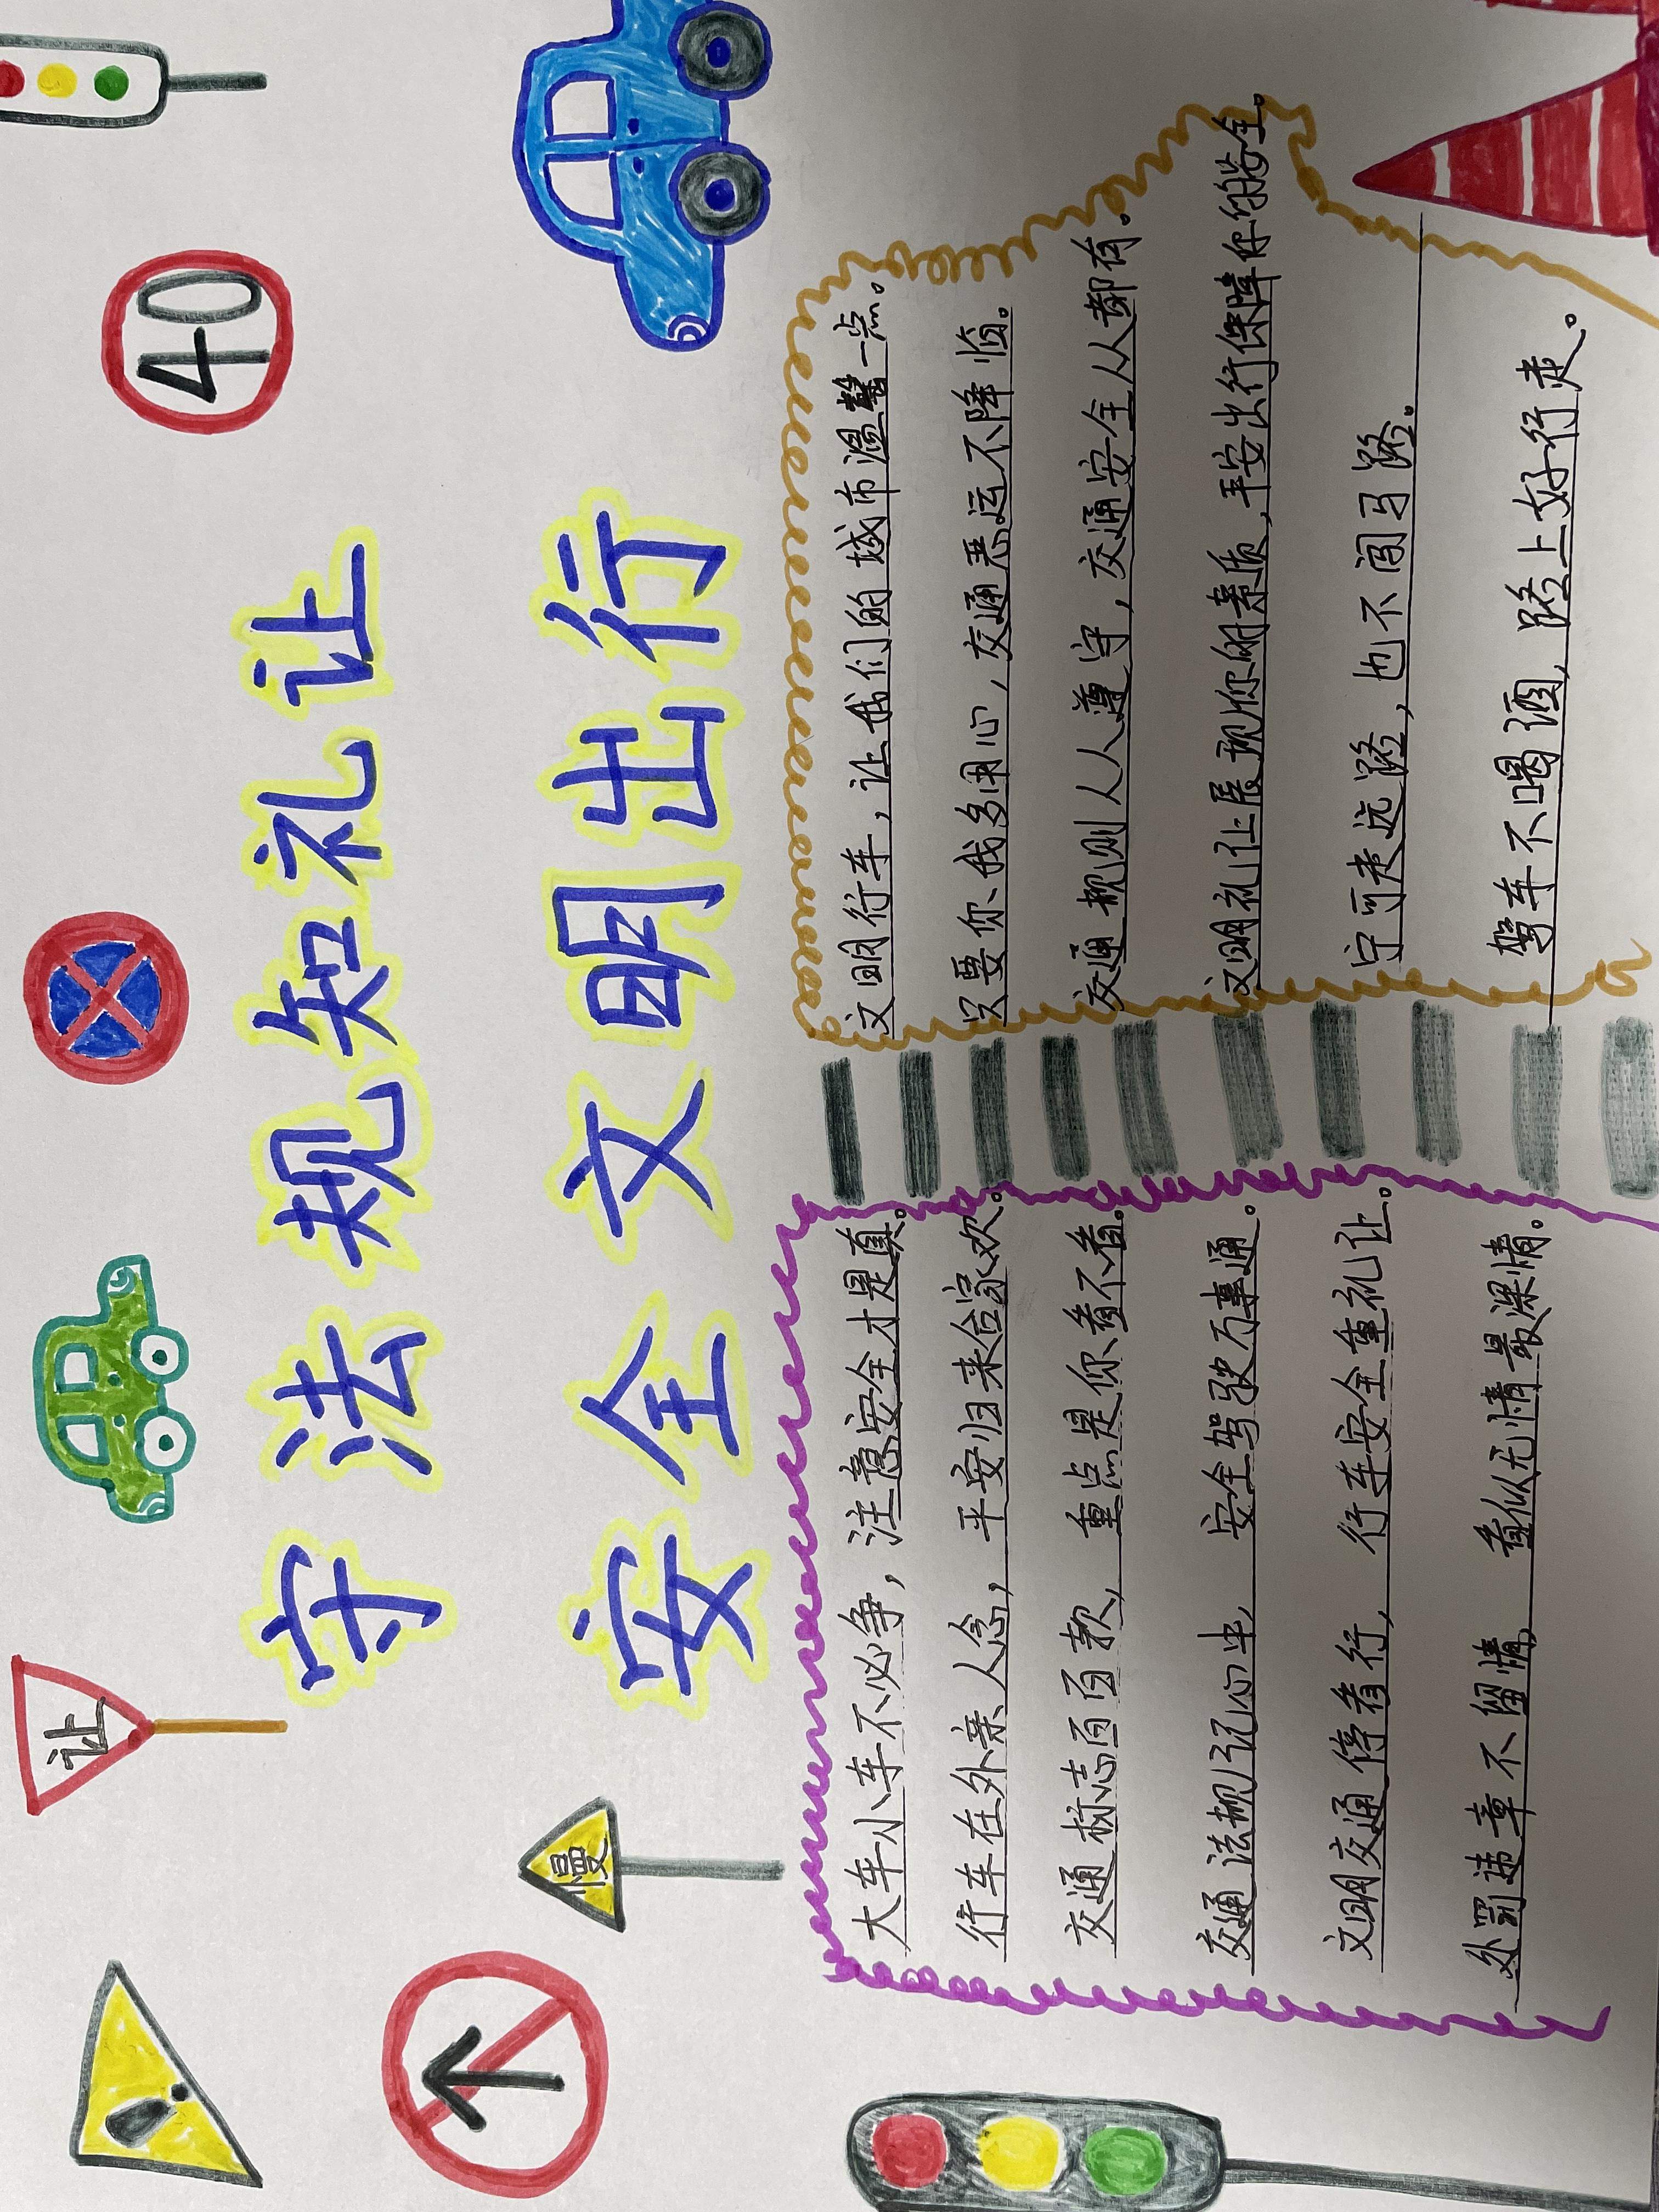 让
40
守法规知礼让
安全文明出行
慢
大车小车不必争，注意安全才是真。
行车在外亲人念，平安归来合家欢。
交通标志百百款，重点是你看不看。
交通法规记心中，安全驾驶万事通。
文明交通停看行，行车安全重礼让。
处罚违章不留情，看似无情最深情。
文明行车，让我们的城市温馨一点。
只要你我多用心，交通恶运不降临。
交通规则人人遵守，交通安全人人都有。
文明礼让展现你的素质，平安出行保障你的安全。
宁可走远路，也不闯马路。
驾车不喝酒，路上好行走。